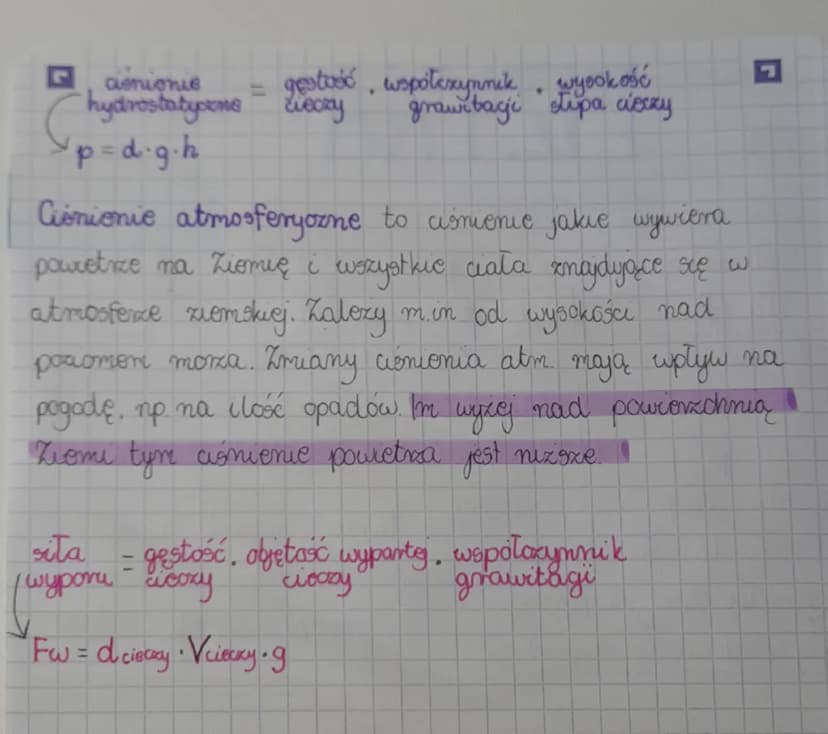 ciśnienie = gęstość · współczynnik · wysokość
hydrostatyczne cieczy grawitacji słupa cieczy
p = d · g · h
Ciśnienie atmosferyczne to ciśnienie jakie wywiera
powietrze na Ziemię i wszystkie ciała znajdujące się w
atmosferze ziemskiej. Zależy m.in od wysokości nad
poziomem morza. Zmiany ciśnienia atm. mają wpływ na
pogodę, np na ilość opadów. Im wyżej nad powierzchnią
Ziemi tym ciśnienie powietrza jest niższe.
siła = gęstość · objętość wypartej · współczynnik
wyporu cieczy cieczy grawitacji
Fw = d cieczy · V cieczy · g